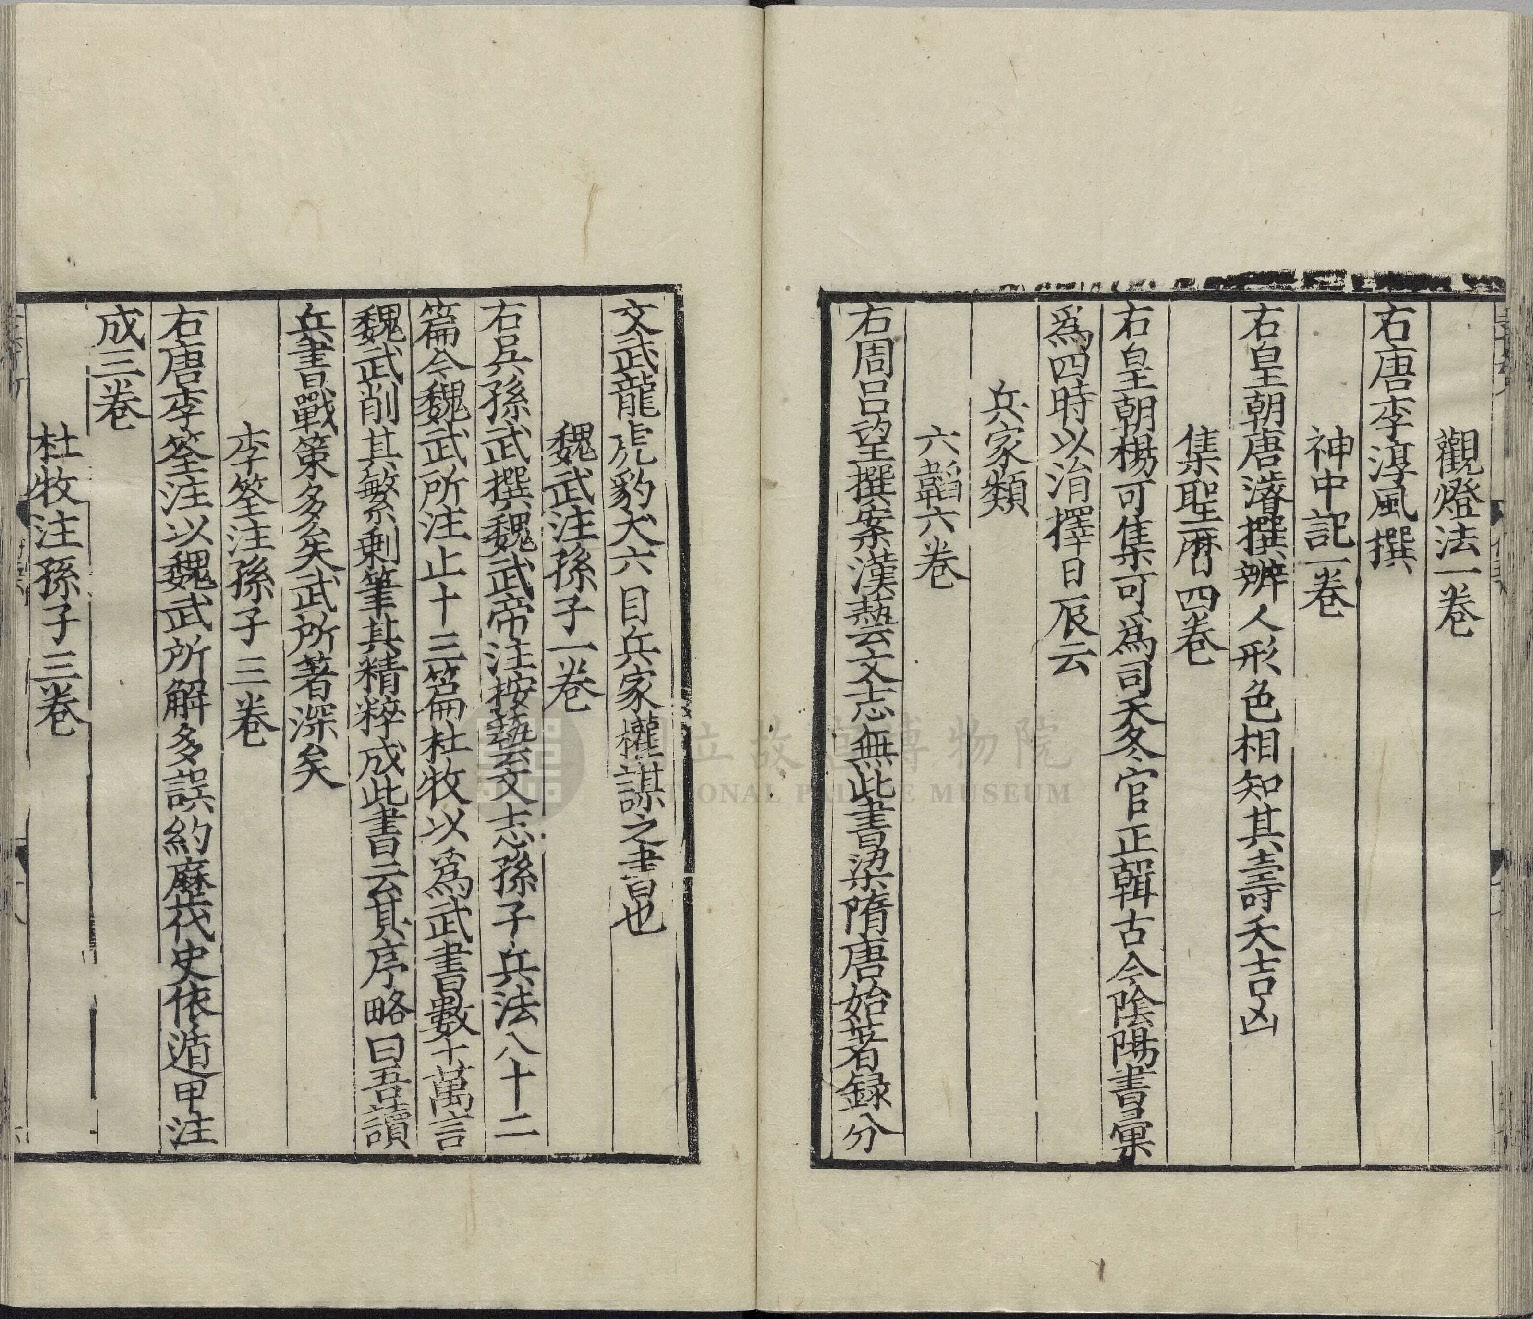 觀燈法一卷
右唐李淳風撰
神中記一卷
右皇朝唐濳撰辨人形色相知其壽夭吉凶
集聖曆四卷
右皇朝楊可集可爲司天冬官正輯古今陰陽書彙
爲四時以治擇日辰云
兵家類
六韜六卷
右周呂望撰案漢藝文志無此書梁隋唐始著錄分
文武龍虎豹犬六目兵家權謀之書也
魏武注孫子一卷
右吳孫武撰魏武帝注按藝文志孫子兵法八十二
篇今魏武所注止十三篇杜牧以爲武書數十萬言
魏武削其繁剩筆其精粹成此書云其序略曰吾讀
兵書戰策多矣武所著深矣
李筌注孫子三卷
右唐李筌注以魏武所解多誤約歷代史依遁甲注
成三卷
杜牧注孫子三卷
國立故宮博物院
NATIONAL PALACE MUSEUM